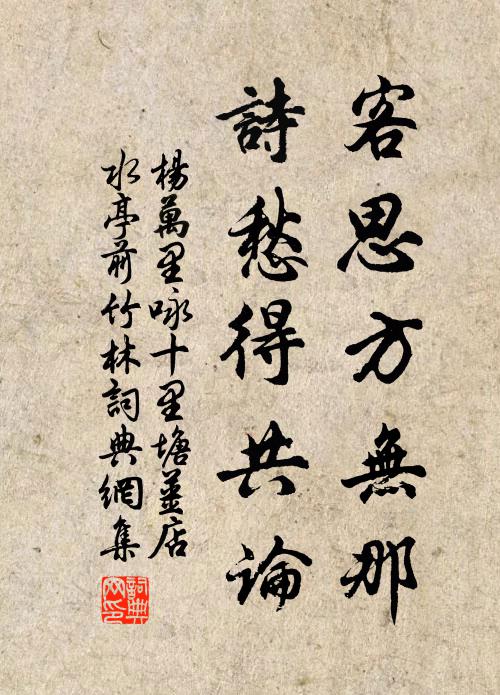 客思方無那
詩愁得共論
楊萬里咏十里塘薑店
水亭前竹林詞典網集
詞典網印